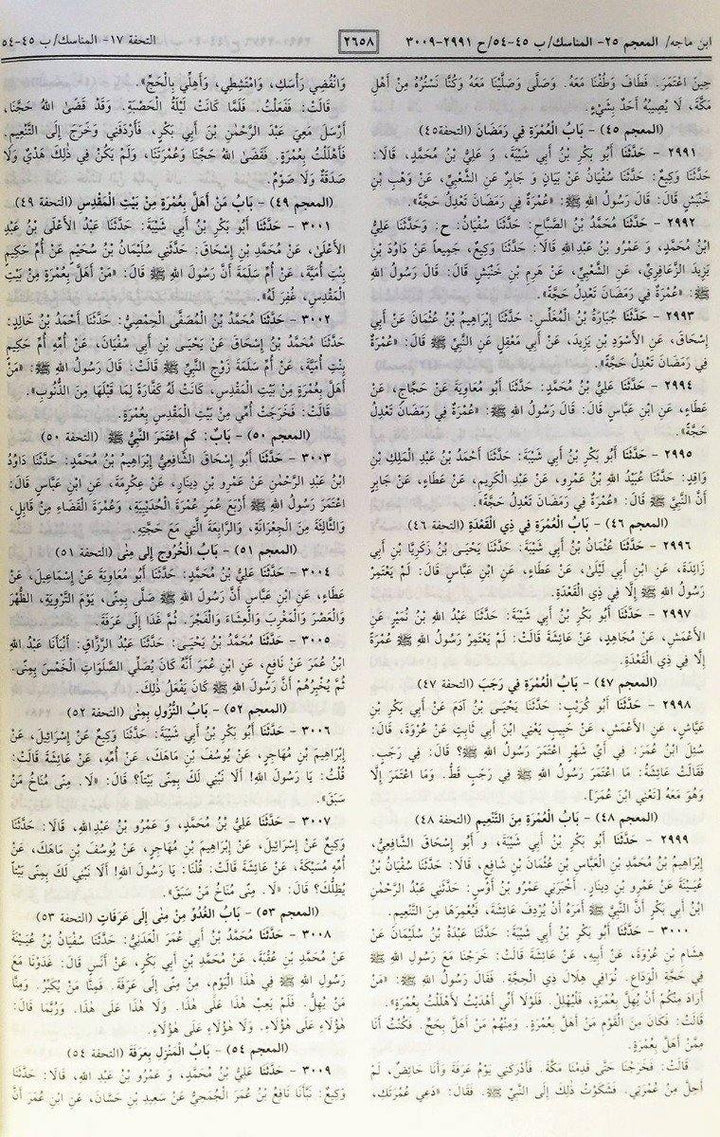 ابن ماجه/ المعجم ٢٥- المناسك/ ب ٤٥-٥٤/ح ٢٩٩١-٣٠٠٩
٢٦٥٨
التحفة ١٧- المناسك/ ب ٤٥-٥٤
حِينَ اعْتَمَرَ. فَطَافَ وَطُفْنَا مَعَهُ. وَصَلَّى وَصَلَّيْنَا مَعَهُ وَكُنَّا نَسْتُرُهُ مِنْ أَهْلِ
مَكَّةَ، لَا يُصِيبُهُ أَحَدٌ بِشَيْءٍ.
(المعجم ٤٥) - بَابُ الْعُمْرَةِ فِي رَمَضَانَ (التحفة ٤٥)
٢٩٩١ - حَدَّثَنَا أَبُو بَكْرِ بْنُ أَبِي شَيْبَةَ، وَ عَلِيُّ بْنُ مُحَمَّدٍ، قَالَا:
حَدَّثَنَا وَكِيعٌ: حَدَّثَنَا سُفْيَانُ عَنْ بَيَانٍ وَ جَابِرٍ عَنِ الشَّعْبِيِّ، عَنْ وَهْبِ بْنِ
خَنْبَشٍ قَالَ: قَالَ رَسُولُ اللهِ ﷺ: «عُمْرَةٌ فِي رَمَضَانَ تَعْدِلُ حَجَّةً».
٢٩٩٢ - حَدَّثَنَا مُحَمَّدُ بْنُ الصَّبَّاحِ: حَدَّثَنَا سُفْيَانُ: ح: وَحَدَّثَنَا عَلِيُّ
ابْنُ مُحَمَّدٍ، وَ عَمْرُو بْنُ عَبْدِ اللهِ قَالَا: حَدَّثَنَا وَكِيعٌ، جَمِيعاً عَنْ دَاوُدَ بْنِ
يَزِيدَ الزَّعَافِرِيِّ، عَنِ الشَّعْبِيِّ، عَنْ هَرِمِ بْنِ خَنْبَشٍ قَالَ: قَالَ رَسُولُ اللهِ
ﷺ: «عُمْرَةٌ فِي رَمَضَانَ تَعْدِلُ حَجَّةً».
٢٩٩٣ - حَدَّثَنَا جُبَارَةُ بْنُ الْمُغَلِّسِ: حَدَّثَنَا إِبْرَاهِيمُ بْنُ عُثْمَانَ عَنْ أَبِي
إِسْحَاقَ، عَنِ الْأَسْوَدِ بْنِ يَزِيدَ، عَنْ أَبِي مَعْقِلٍ عَنِ النَّبِيِّ ﷺ قَالَ: «عُمْرَةٌ
فِي رَمَضَانَ تَعْدِلُ حَجَّةً».
٢٩٩٤ - حَدَّثَنَا عَلِيُّ بْنُ مُحَمَّدٍ: حَدَّثَنَا أَبُو مُعَاوِيَةَ عَنْ حَجَّاجٍ، عَنْ
عَطَاءٍ، عَنِ ابْنِ عَبَّاسٍ قَالَ: قَالَ رَسُولُ اللهِ ﷺ: «عُمْرَةٌ فِي رَمَضَانَ تَعْدِلُ
حَجَّةً».
٢٩٩٥ - حَدَّثَنَا أَبُو بَكْرِ بْنُ أَبِي شَيْبَةَ: حَدَّثَنَا أَحْمَدُ بْنُ عَبْدِ الْمَلِكِ بْنِ
وَاقِدٍ: حَدَّثَنَا عُبَيْدُ اللهِ بْنُ عَمْرٍو، عَنْ عَبْدِ الْكَرِيمِ، عَنْ عَطَاءٍ، عَنْ جَابِرٍ
أَنَّ النَّبِيَّ ﷺ قَالَ: «عُمْرَةٌ فِي رَمَضَانَ تَعْدِلُ حَجَّةً».
(المعجم ٤٦) - بَابُ الْعُمْرَةِ فِي ذِي الْقَعْدَةِ (التحفة ٤٦)
٢٩٩٦ - حَدَّثَنَا عُثْمَانُ بْنُ أَبِي شَيْبَةَ: حَدَّثَنَا يَحْيَى بْنُ زَكَرِيَّا بْنِ أَبِي
زَائِدَةَ، عَنِ ابْنِ أَبِي لَيْلَى، عَنْ عَطَاءٍ، عَنِ ابْنِ عَبَّاسٍ قَالَ: لَمْ يَعْتَمِرْ
رَسُولُ اللهِ ﷺ إِلَّا فِي ذِي الْقَعْدَةِ.
٢٩٩٧ - حَدَّثَنَا أَبُو بَكْرِ بْنُ أَبِي شَيْبَةَ: حَدَّثَنَا عَبْدُ اللهِ بْنُ نُمَيْرٍ عَنِ
الْأَعْمَشِ، عَنْ مُجَاهِدٍ، عَنْ عَائِشَةَ قَالَتْ: لَمْ يَعْتَمِرْ رَسُولُ اللهِ ﷺ عُمْرَةً
إِلَّا فِي ذِي الْقَعْدَةِ.
(المعجم ٤٧) - بَابُ الْعُمْرَةِ فِي رَجَبَ (التحفة ٤٧)
٢٩٩٨ - حَدَّثَنَا أَبُو كُرَيْبٍ: حَدَّثَنَا يَحْيَى بْنُ آدَمَ عَنْ أَبِي بَكْرِ بْنِ
عَيَّاشٍ، عَنِ الْأَعْمَشِ، عَنْ حَبِيبٍ يَعْنِي ابْنَ أَبِي ثَابِتٍ عَنْ عُرْوَةَ، قَالَ:
سُئِلَ ابْنُ عُمَرَ: فِي أَيِّ شَهْرٍ اعْتَمَرَ رَسُولُ اللهِ ﷺ؟ قَالَ: فِي رَجَبٍ.
فَقَالَتْ عَائِشَةُ: مَا اعْتَمَرَ رَسُولُ اللهِ ﷺ فِي رَجَبٍ قَطُّ. وَمَا اعْتَمَرَ إِلَّا
وَهُوَ مَعَهُ [تَعْنِي ابْنَ عُمَرَ].
(المعجم ٤٨) - بَابُ الْعُمْرَةِ مِنَ التَّنْعِيمِ (التحفة ٤٨)
٢٩٩٩ - حَدَّثَنَا أَبُو بَكْرِ بْنُ أَبِي شَيْبَةَ، وَ أَبُو إِسْحَاقَ الشَّافِعِيُّ،
إِبْرَاهِيمُ بْنُ مُحَمَّدِ بْنِ الْعَبَّاسِ بْنِ عُثْمَانَ بْنِ شَافِعٍ، قَالَا: حَدَّثَنَا سُفْيَانُ بْنُ
عُيَيْنَةَ عَنْ عَمْرِو بْنِ دِينَارٍ. أَخْبَرَنِي عَمْرُو بْنُ أَوْسٍ: حَدَّثَنِي عَبْدُ الرَّحْمٰنِ
ابْنُ أَبِي بَكْرٍ أَنَّ النَّبِيَّ ﷺ أَمَرَهُ أَنْ يُرْدِفَ عَائِشَةَ، فَيُعْمِرَهَا مِنَ التَّنْعِيمِ.
٣٠٠٠ - حَدَّثَنَا أَبُو بَكْرِ بْنُ أَبِي شَيْبَةَ: حَدَّثَنَا عَبْدَةُ بْنُ سُلَيْمَانَ عَنْ
هِشَامِ بْنِ عُرْوَةَ، عَنْ أَبِيهِ، عَنْ عَائِشَةَ قَالَتْ: خَرَجْنَا مَعَ رَسُولِ اللهِ ﷺ
فِي حَجَّةِ الْوَدَاعِ. نُوَافِي هِلَالَ ذِي الْحِجَّةِ. فَقَالَ رَسُولُ اللهِ ﷺ: «مَنْ
أَرَادَ مِنْكُمْ أَنْ يُهِلَّ بِعُمْرَةٍ، فَلْيُهْلِلْ. فَلَوْلَا أَنِّي أَهْدَيْتُ لَأَهْلَلْتُ بِعُمْرَةٍ».
قَالَتْ: فَكَانَ مِنَ الْقَوْمِ مَنْ أَهَلَّ بِعُمْرَةٍ. وَمِنْهُمْ مَنْ أَهَلَّ بِحَجٍّ. فَكُنْتُ أَنَا
مِمَّنْ أَهَلَّ بِعُمْرَةٍ.
قَالَتْ: فَخَرَجْنَا حَتَّى قَدِمْنَا مَكَّةَ. فَأَدْرَكَنِي يَوْمُ عَرَفَةَ وَأَنَا حَائِضٌ، لَمْ
أَحِلَّ مِنْ عُمْرَتِي. فَشَكَوْتُ ذٰلِكَ إِلَى النَّبِيِّ ﷺ. فَقَالَ: «دَعِي عُمْرَتَكِ،
وَانْقُضِي رَأْسَكِ، وَامْتَشِطِي، وَأَهِلِّي بِالْحَجِّ».
قَالَتْ: فَفَعَلْتُ. فَلَمَّا كَانَتْ لَيْلَةُ الْحَصْبَةِ. وَقَدْ قَضَى اللهُ حَجَّنَا،
أَرْسَلَ مَعِيَ عَبْدَ الرَّحْمٰنِ بْنَ أَبِي بَكْرٍ، فَأَرْدَفَنِي وَخَرَجَ إِلَى التَّنْعِيمِ.
فَأَهْلَلْتُ بِعُمْرَةٍ. فَقَضَى اللهُ حَجَّنَا وَعُمْرَتَنَا، وَلَمْ يَكُنْ فِي ذٰلِكَ هَدْيٌ وَلَا
صَدَقَةٌ وَلَا صَوْمٌ.
(المعجم ٤٩) - بَابُ مَنْ أَهَلَّ بِعُمْرَةٍ مِنْ بَيْتِ الْمَقْدِسِ (التحفة ٤٩)
٣٠٠١ - حَدَّثَنَا أَبُو بَكْرِ بْنُ أَبِي شَيْبَةَ: حَدَّثَنَا عَبْدُ الْأَعْلَى بْنُ عَبْدِ
الْأَعْلَى، عَنْ مُحَمَّدِ بْنِ إِسْحَاقَ: حَدَّثَنِي سُلَيْمَانُ بْنُ سُحَيْمٍ عَنْ أُمِّ حَكِيمٍ
بِنْتِ أُمَيَّةَ، عَنْ أُمِّ سَلَمَةَ أَنَّ رَسُولَ اللهِ ﷺ قَالَ: «مَنْ أَهَلَّ بِعُمْرَةٍ مِنْ بَيْتِ
الْمَقْدِسِ، غُفِرَ لَهُ».
٣٠٠٢ - حَدَّثَنَا مُحَمَّدُ بْنُ الْمُصَفَّى الْحِمْصِيُّ: حَدَّثَنَا أَحْمَدُ بْنُ خَالِدٍ:
حَدَّثَنَا مُحَمَّدُ بْنُ إِسْحَاقَ عَنْ يَحْيَى بْنِ أَبِي سُفْيَانَ، عَنْ أُمِّهِ أُمِّ حَكِيمٍ
بِنْتِ أُمَيَّةَ، عَنْ أُمِّ سَلَمَةَ زَوْجِ النَّبِيِّ ﷺ قَالَتْ: قَالَ رَسُولُ اللهِ ﷺ: «مَنْ
أَهَلَّ بِعُمْرَةٍ مِنْ بَيْتِ الْمَقْدِسِ، كَانَتْ لَهُ كَفَّارَةً لِمَا قَبْلَهَا مِنَ الذُّنُوبِ».
قَالَتْ: فَخَرَجَتْ أُمِّي مِنْ بَيْتِ الْمَقْدِسِ بِعُمْرَةٍ.
(المعجم ٥٠) - بَابٌ: كَمِ اعْتَمَرَ النَّبِيُّ ﷺ (التحفة ٥٠)
٣٠٠٣ - حَدَّثَنَا أَبُو إِسْحَاقَ الشَّافِعِيُّ إِبْرَاهِيمُ بْنُ مُحَمَّدٍ: حَدَّثَنَا دَاوُدُ
ابْنُ عَبْدِ الرَّحْمٰنِ عَنْ عَمْرِو بْنِ دِينَارٍ، عَنْ عِكْرِمَةَ، عَنِ ابْنِ عَبَّاسٍ قَالَ:
اعْتَمَرَ رَسُولُ اللهِ ﷺ أَرْبَعَ عُمَرٍ عُمْرَةَ الْحُدَيْبِيَةِ، وَعُمْرَةَ الْقَضَاءِ مِنْ قَابِلٍ،
وَالثَّالِثَةَ مِنَ الْجِعْرَانَةِ، وَالرَّابِعَةَ الَّتِي مَعَ حَجَّتِهِ.
(المعجم ٥١) - بَابُ الْخُرُوجِ إِلَى مِنًى (التحفة ٥١)
٣٠٠٤ - حَدَّثَنَا عَلِيُّ بْنُ مُحَمَّدٍ: حَدَّثَنَا أَبُو مُعَاوِيَةَ عَنْ إِسْمَاعِيلَ، عَنْ
عَطَاءٍ، عَنِ ابْنِ عَبَّاسٍ أَنَّ رَسُولَ اللهِ ﷺ صَلَّى بِمِنًى، يَوْمَ التَّرْوِيَةِ، الظُّهْرَ
وَالْعَصْرَ وَالْمَغْرِبَ وَالْعِشَاءَ وَالْفَجْرَ. ثُمَّ غَدَا إِلَى عَرَفَةَ.
٣٠٠٥ - حَدَّثَنَا مُحَمَّدُ بْنُ يَحْيَى: حَدَّثَنَا عَبْدُ الرَّزَّاقِ: أَنْبَأَنَا عَبْدُ اللهِ
ابْنُ عُمَرَ عَنْ نَافِعٍ، عَنِ ابْنِ عُمَرَ أَنَّهُ كَانَ يُصَلِّي الصَّلَوَاتِ الْخَمْسَ بِمِنًى.
ثُمَّ يُخْبِرُهُمْ أَنَّ رَسُولَ اللهِ ﷺ كَانَ يَفْعَلُ ذٰلِكَ.
(المعجم ٥٢) - بَابُ النُّزُولِ بِمِنًى (التحفة ٥٢)
٣٠٠٦ - حَدَّثَنَا أَبُو بَكْرِ بْنُ أَبِي شَيْبَةَ: حَدَّثَنَا وَكِيعٌ عَنْ إِسْرَائِيلَ، عَنْ
إِبْرَاهِيمَ بْنِ مُهَاجِرٍ، عَنْ يُوسُفَ بْنِ مَاهَكَ، عَنْ أُمِّهِ، عَنْ عَائِشَةَ قَالَتْ:
قُلْتُ: يَا رَسُولَ اللهِ! أَلَا نَبْنِي لَكَ بِمِنًى بَيْتاً؟ قَالَ: «لَا. مِنًى مُنَاخُ مَنْ
سَبَقَ».
٣٠٠٧ - حَدَّثَنَا عَلِيُّ بْنُ مُحَمَّدٍ، وَ عَمْرُو بْنُ عَبْدِاللهِ، قَالَا: حَدَّثَنَا
وَكِيعٌ عَنْ إِسْرَائِيلَ، عَنْ إِبْرَاهِيمَ بْنِ مُهَاجِرٍ، عَنْ يُوسُفَ بْنِ مَاهَكَ، عَنْ
أُمِّهِ مُسَيْكَةَ، عَنْ عَائِشَةَ قَالَتْ: قُلْنَا: يَا رَسُولَ اللهِ! أَلَا نَبْنِي لَكَ بِمِنًى بَيْتاً
يُظِلُّكَ؟ قَالَ: «لَا. مِنًى مُنَاخُ مَنْ سَبَقَ».
(المعجم ٥٣) - بَابُ الْغُدُوِّ مِنْ مِنًى إِلَى عَرَفَاتٍ (التحفة ٥٣)
٣٠٠٨ - حَدَّثَنَا مُحَمَّدُ بْنُ أَبِي عُمَرَ الْعَدَنِيُّ: حَدَّثَنَا سُفْيَانُ بْنُ عُيَيْنَةَ
عَنْ مُحَمَّدِ بْنِ عُقْبَةَ، عَنْ مُحَمَّدِ بْنِ أَبِي بَكْرٍ، عَنْ أَنَسٍ قَالَ: غَدَوْنَا مَعَ
رَسُولِ اللهِ ﷺ فِي هٰذَا الْيَوْمِ، مِنْ مِنًى إِلَى عَرَفَةَ. فَمِنَّا مَنْ يُكَبِّرُ. وَمِنَّا
مَنْ يُهِلُّ. فَلَمْ يَعِبْ هٰذَا عَلَى هٰذَا. وَلَا هٰذَا عَلَى هٰذَا. وَرُبَّمَا قَالَ:
هٰؤُلَاءِ عَلَى هٰؤُلَاءِ. وَلَا هٰؤُلَاءِ عَلَى هٰؤُلَاءِ.
(المعجم ٥٤) - بَابُ الْمَنْزَلِ بِعَرَفَةَ (التحفة ٥٤)
٣٠٠٩ - حَدَّثَنَا عَلِيُّ بْنُ مُحَمَّدٍ، وَ عَمْرُو بْنُ عَبْدِ اللهِ، قَالَا: حَدَّثَنَا
وَكِيعٌ: نَبَّأَنَا نَافِعُ بْنُ عُمَرَ الْجُمَحِيُّ عَنْ سَعِيدِ بْنِ حَسَّانَ، عَنِ ابْنِ عُمَرَ أَنَّ